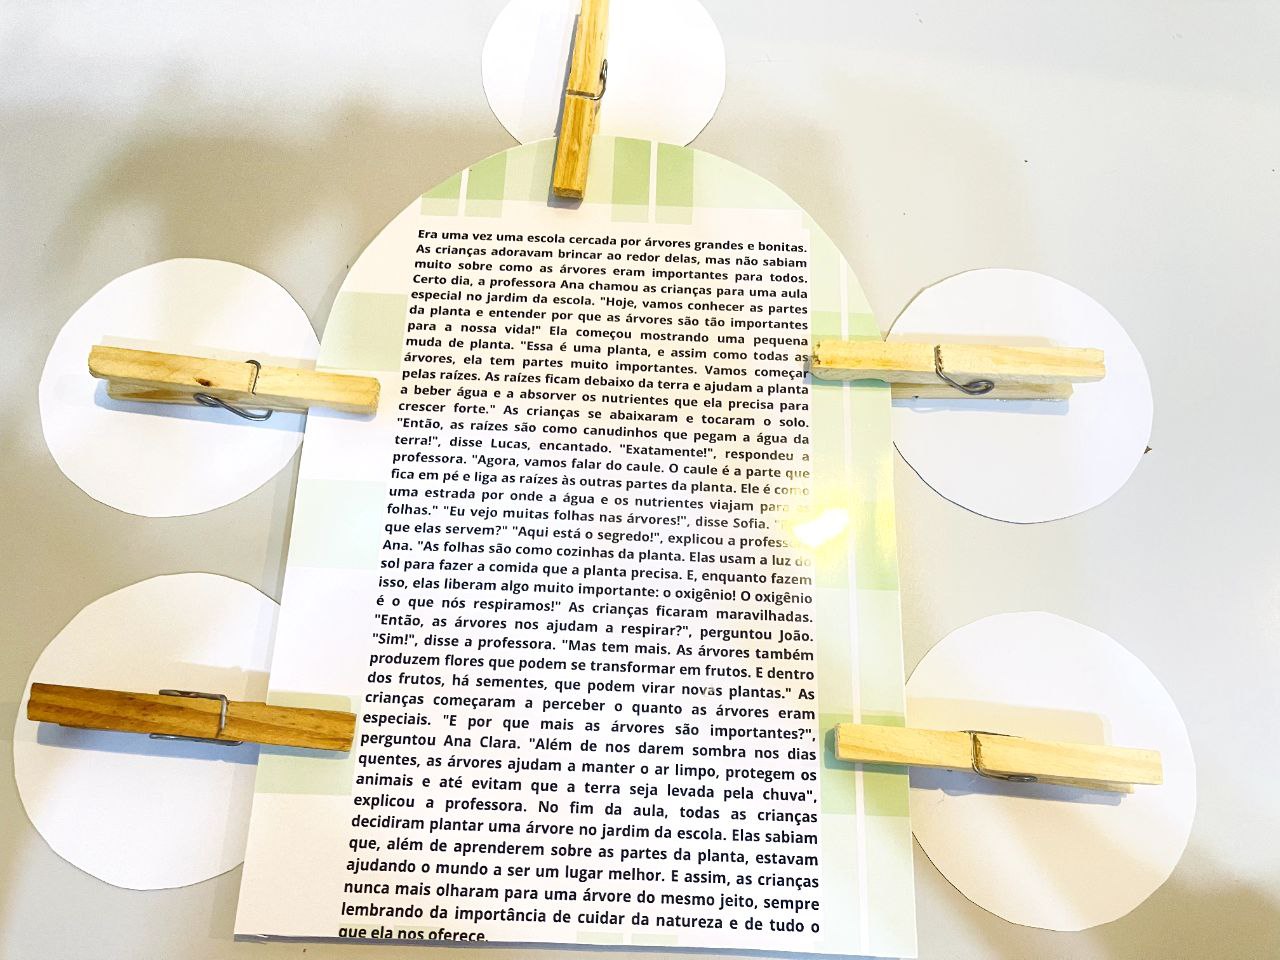 Era uma vez uma escola cercada por árvores grandes e bonitas.
As crianças adoravam brincar ao redor delas, mas não sabiam
muito sobre como as árvores eram importantes para todos.
Certo dia, a professora Ana chamou as crianças para uma aula
especial no jardim da escola. "Hoje, vamos conhecer as partes
da planta e entender por que as árvores são tão importantes
para a nossa vida!" Ela começou mostrando uma pequena
muda de planta. "Essa é uma planta, e assim como todas as
árvores, ela tem partes muito importantes. Vamos começar
pelas raízes. As raízes ficam debaixo da terra e ajudam a planta
a beber água e a absorver os nutrientes que ela precisa para
crescer forte." As crianças se abaixaram e tocaram o solo.
"Então, as raízes são como canudinhos que pegam a água da
terra!", disse Lucas, encantado. "Exatamente!", respondeu a
professora. "Agora, vamos falar do caule. O caule é a parte que
fica em pé e liga as raízes às outras partes da planta. Ele é como
uma estrada por onde a água e os nutrientes viajam para
folhas." "Eu vejo muitas folhas nas árvores!", disse Sofia.
que elas servem?" "Aqui está o segredo!", explicou a
Ana. "As folhas são como cozinhas da planta. Elas usam a luz do
sol para fazer a comida que a planta precisa. E, enquanto fazem
isso, elas liberam algo muito importante: o oxigênio! O oxigênio
é o que nós respiramos!" As crianças ficaram maravilhadas.
"Então, as árvores nos ajudam a respirar?", perguntou João.
"Sim!", disse a professora. "Mas tem mais. As árvores também
produzem flores que podem se transformar em frutos. E dentro
dos frutos, há sementes, que podem virar novas plantas." As
crianças começaram a perceber o quanto as árvores eram
especiais. "E por que mais as árvores são importantes?",
perguntou Ana Clara. "Além de nos darem sombra nos dias
quentes, as árvores ajudam a manter o ar limpo, protegem os
animais e até evitam que a terra seja levada pela chuva",
explicou a professora. No fim da aula, todas as crianças
decidiram plantar uma árvore no jardim da escola. Elas sabiam
que, além de aprenderem sobre as partes da planta, estavam
ajudando o mundo a ser um lugar melhor. E assim, as crianças
nunca mais olharam para uma árvore do mesmo jeito, sempre
lembrando da importância de cuidar da natureza e de tudo o
que ela nos oferece.